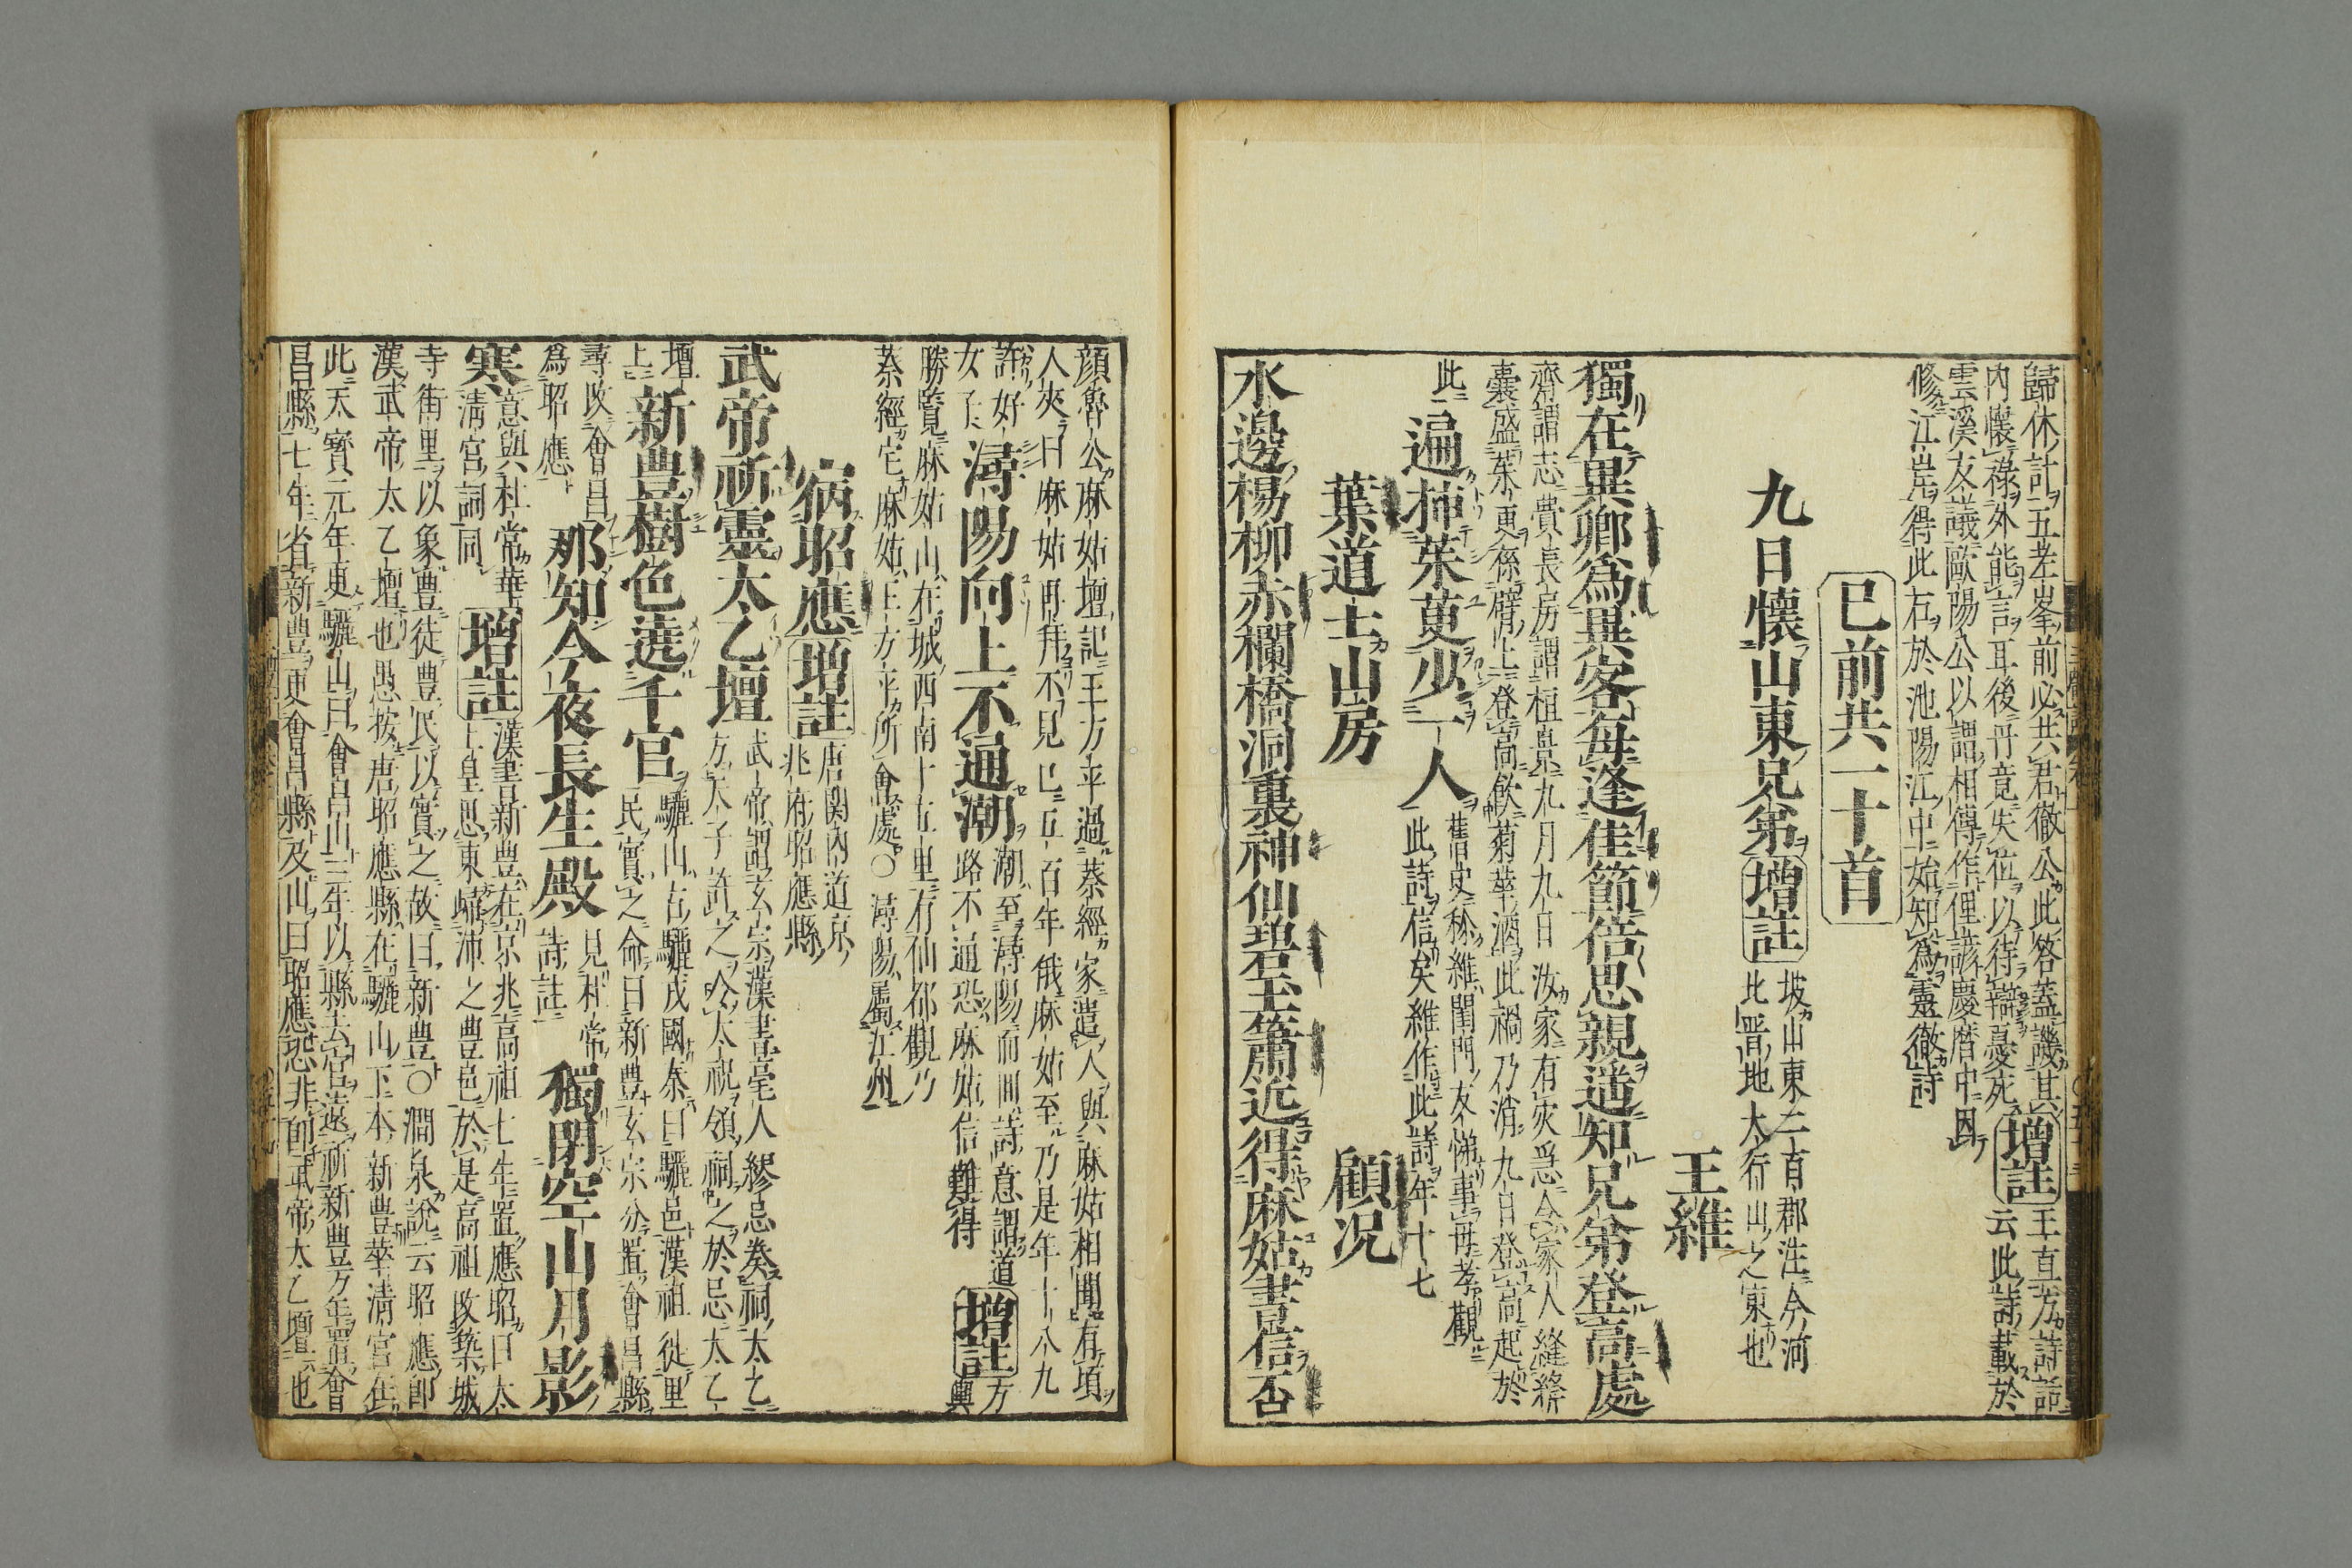 歸休計五老峯前必共君徹公此答蓋譏其
内懷祿外能言耳後丹竟失位以待辯憂死
増註
王直方詩話
云此詩載於
雲溪友議歐陽公以謂相傳作俚諺慶曆中因
修江岸得此石於池陽江中始知爲靈徹詩
已前共一十首
九日懷山東兄弟
増註
坡山東二百郡注今河
北晋地太行山之東也
王維
獨在異鄉爲異客每逢佳節倍思親遥知兄弟登高處
齊諧志費長房謂桓景九月九日汝家有灾急令家人縫絳
囊盛茱更係臂上登高飲菊華酒此禍乃消九日登高起於
此
遍挿茱萸少一人
舊史称維閨門友悌事母孝觀
此詩信矣維作此詩年十七
葉道士山房
顧况
水邊楊柳赤欄橋洞裏神仙碧玉簫近得麻姑書信否
顔魯公麻姑壇記王方平過蔡經家遣人與麻姑相聞有頃
人來曰麻姑再拜不見已五百年俄麻姑至乃是年十八九
許好
女子
潯陽向上不通潮
潮至潯陽而囬詩意謂道
路不通恐麻姑信難得
増註
方
輿
勝覽麻姑山在城西南十五里有仙都觀乃
蔡經宅麻姑王方平所會處○潯陽屬江州
宿昭應
増註
唐関内道京
兆府昭應縣
武帝祈靈太乙壇
武帝謂玄宗漢書亳人繆忌奏祠太乙
方天子許之令太祝領祠之於忌太乙
壇
上
新豊樹色遶千官
驪山古驪戎國秦曰驪邑漢祖徙里
民實之命曰新豊玄宗分置會昌縣
尋改會昌
爲昭應
那知今夜長生殿
見杜常
詩註
獨閉空山月影
寒
意與杜常華
淸宮詞同
増註
漢書新豊在京兆高祖七年置應昭曰太
上皇思東歸沛之豊邑於是高祖改築城
寺街里以象豊徙豊民以實之故曰新豊○澗泉説云昭應即
漢武帝太乙壇也愚按唐昭應縣在驪山下本新豊華清宮在
此天寶元年更驪山曰會昌山三年以縣去宮遠祈新豊万年置會
昌縣七年省新豊更會昌縣及山曰昭應恐非即武帝太乙壇也